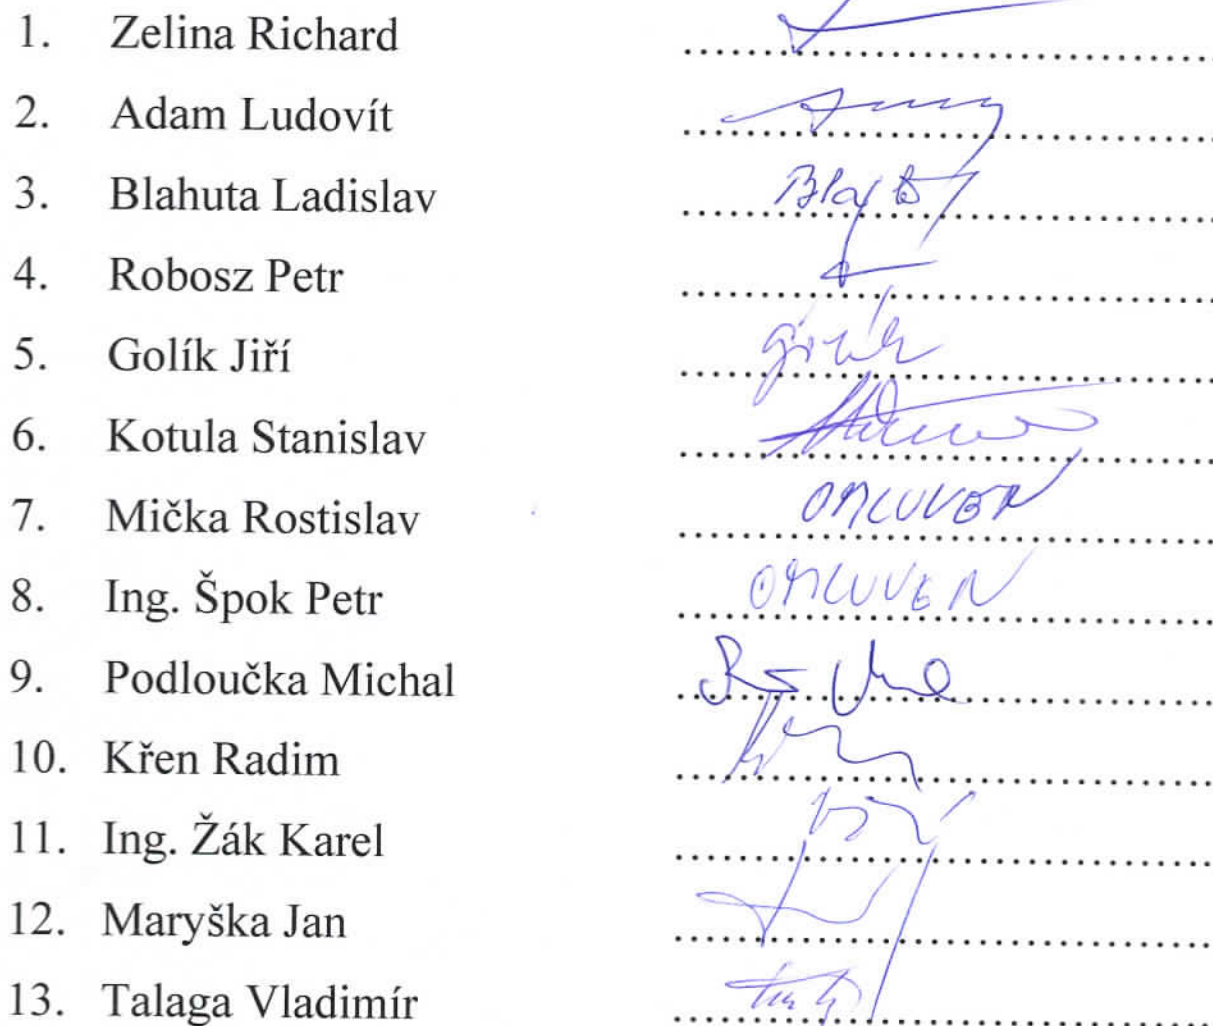 1. Zelina Richard
2. Adam Ludovít
3. Blahuta Ladislav
4. Robosz Petr
5. Golík Jiří
6. Kotula Stanislav
7. Mička Rostislav OMLUVEN
8. Ing. Špok Petr OMLUVEN
9. Podloučka Michal
10. Křen Radim
11. Ing. Žák Karel
12. Maryška Jan
13. Talaga Vladimír